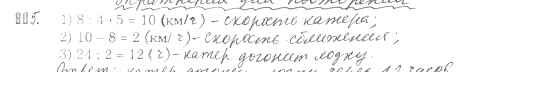 Упражнения для повторения
805. 1) 8 · 4 : 5 = 10 (км/г) – скорость катера;
2) 10 – 8 = 2 (км/г) – скорость сближения;
3) 24 : 2 = 12 (г) – катер догонит лодку.
Ответ: катер догонит лодку через 12 часов